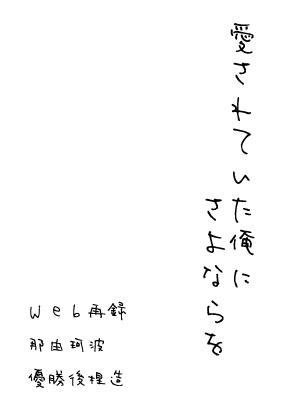 愛されていた俺に
さよならを
Web再録
那由珂波
優勝後捏造